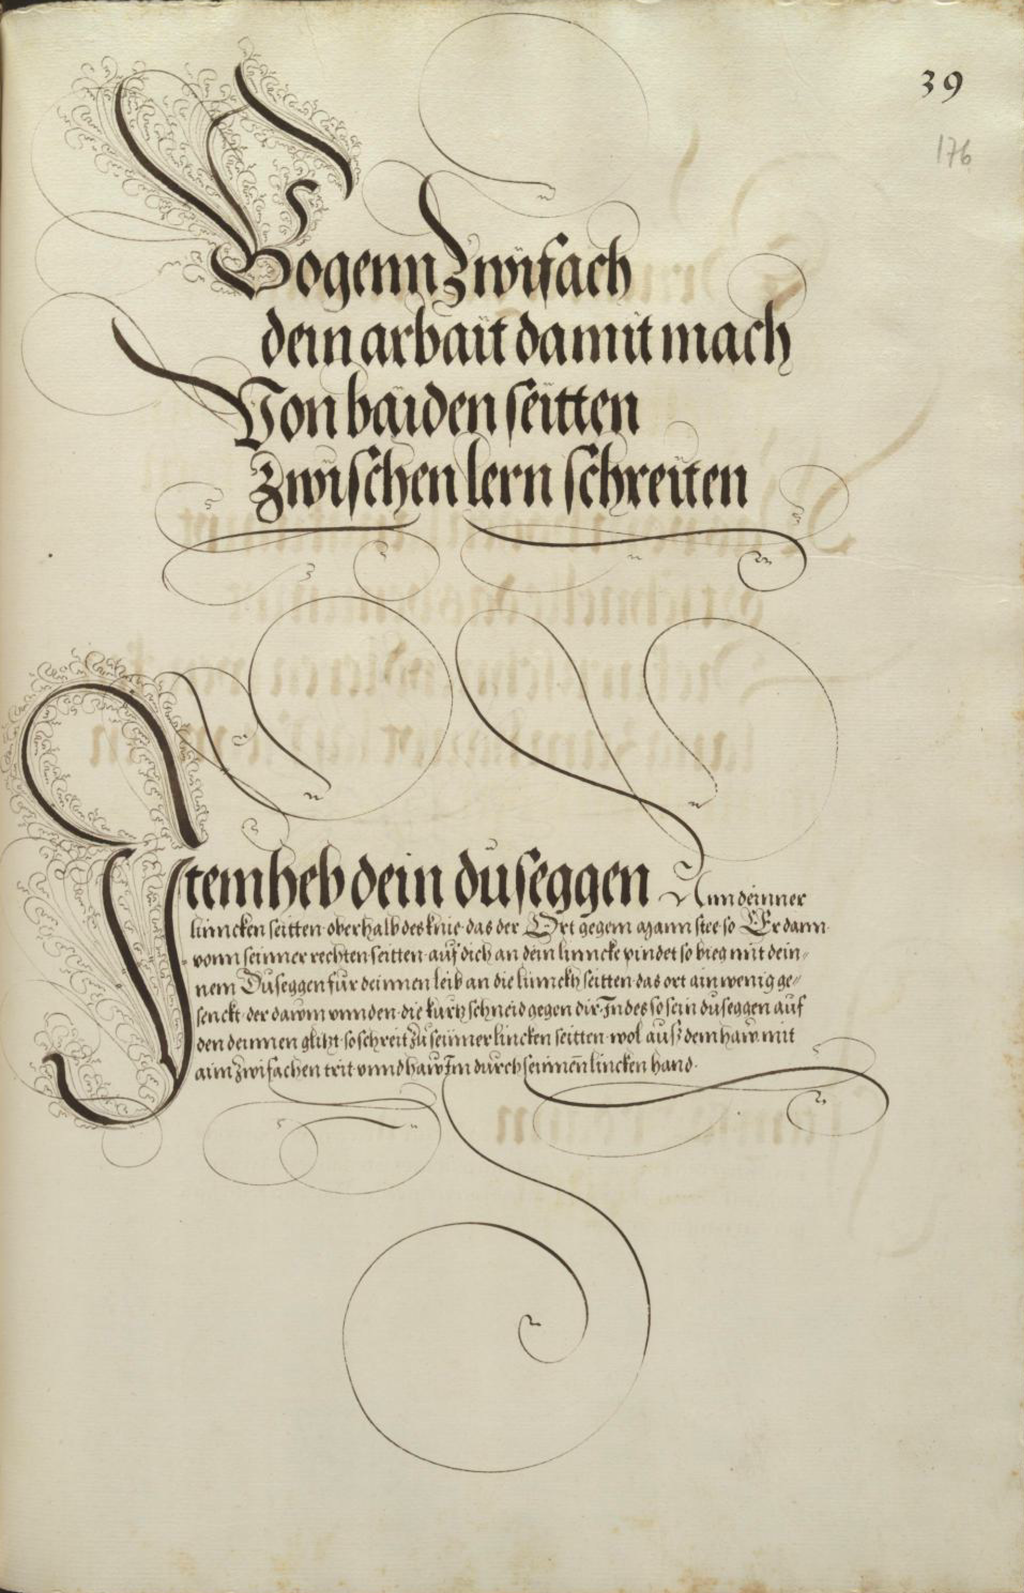 39
176
Bogenn Zwifach
dein arbait damit mach
Von baiden seitten
Zwischen lern schreiten
Item heb dein duseggen Nun deinner
linncken seitten oberhalb des knie das der Ort gegem mann stee so Er dann
vonn seinner rechten seitten auf dich an dein linncke pindet so bieg mit dein-
nem Duseggen für deinnen leib an die linnckh seitten das ort ain wenig ge-
senckt der dawm vnnden die kurtz schneid gegen dir Indes so sein duseggen auf
den deinnen glitzt so schreit Zu seinner lincken seitten wol aus dem haw mit
aim Zwifachen trit vnnd haw Im durch seinnen lincken hand